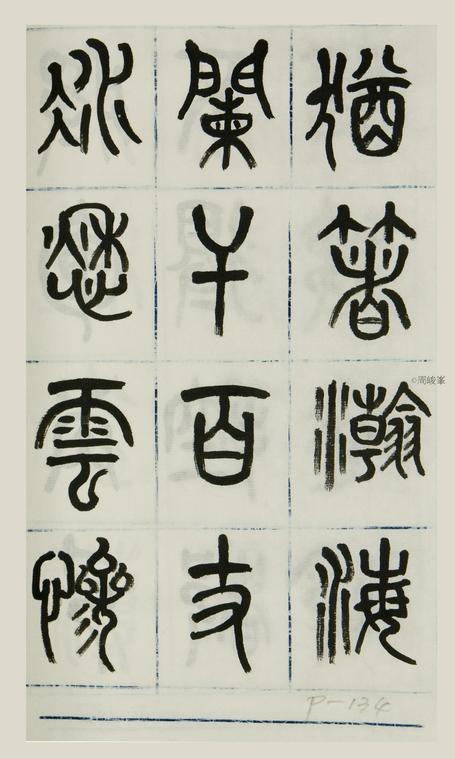 猶著瀚海
闌干百丈
冰愁雲慘
©周峻峯
P-134